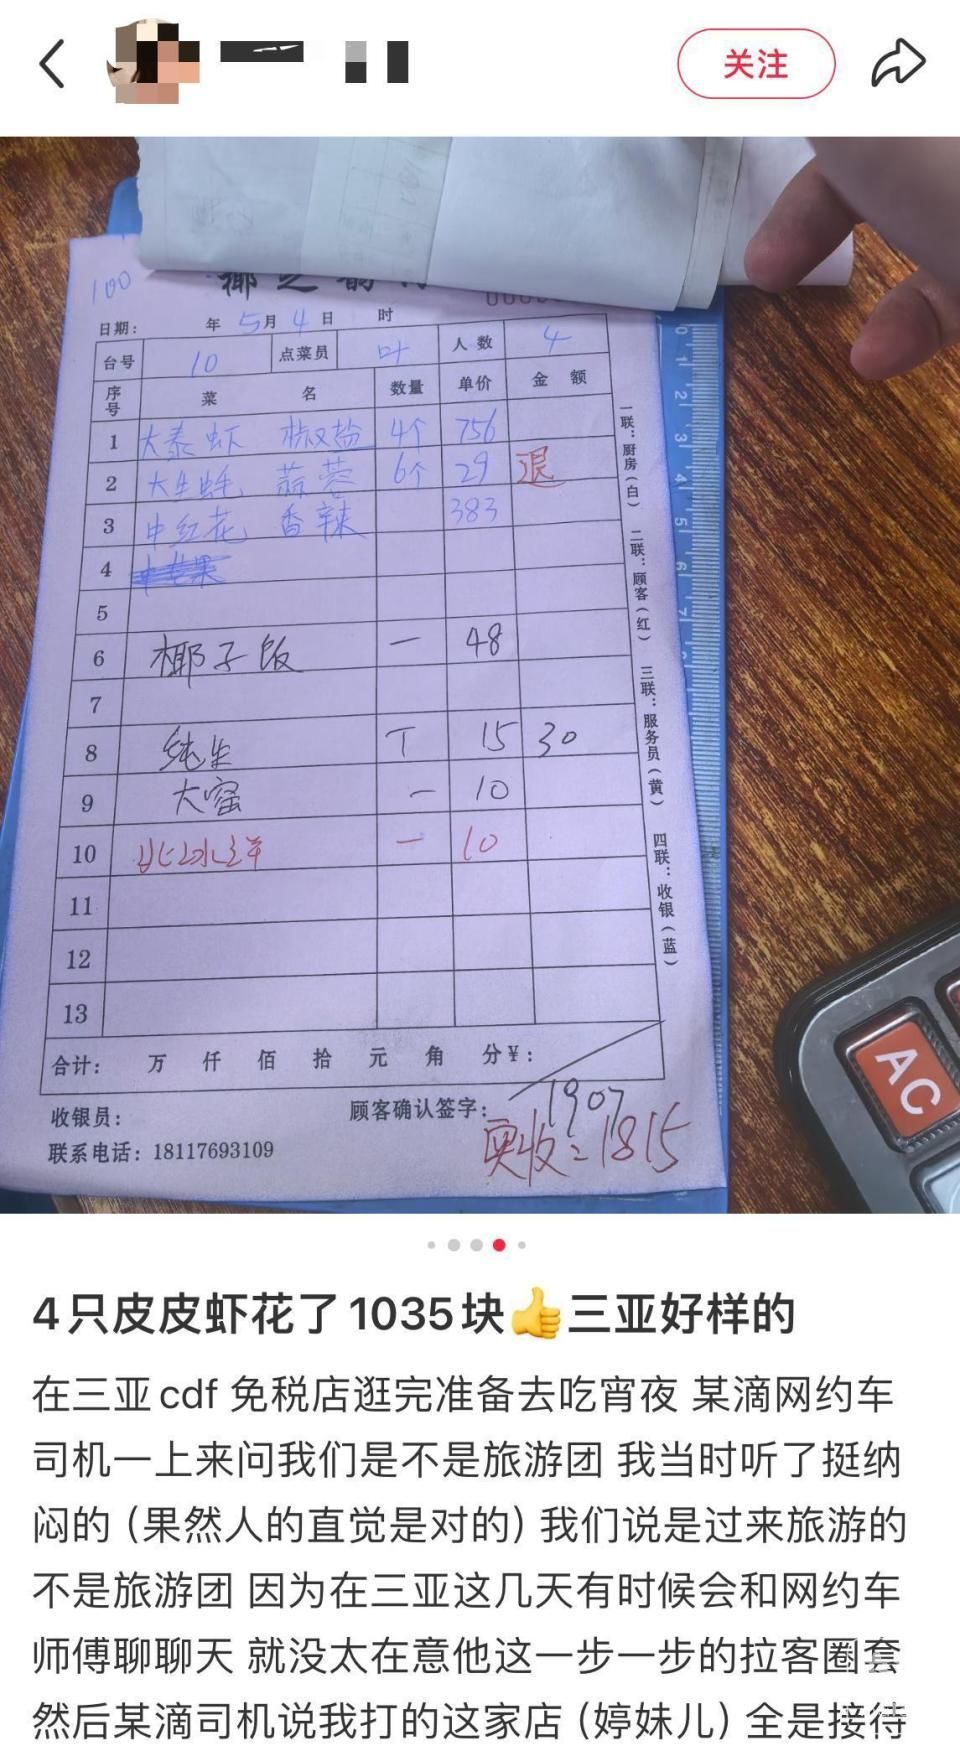 关注
100
椰之韵
日期： 年 5月 4日 时
台号 10 点菜员 叶 人数 4
序号 菜 名 数量 单价 金 额
1 大泰虾 椒盐 4个 756
2 大生蚝 蒜蓉 6个 29 退
3 中红花 香辣 383
4
5
6 椰子饭 一 48
7
8 纯生 T 15 30
9 大窑 一 10
10 北冰洋 一 10
11
12
13
合计： 万 仟 佰 拾 元 角 分¥：
收银员： 顾客确认签字： 1907
联系电话：18117693109 实收=1815
一联：厨房（白） 二联：顾客（红） 三联：服务员（黄） 四联：收银（蓝）
0 1 2 3 4 5 6 7
AC
4只皮皮虾花了1035块👍三亚好样的
在三亚cdf 免税店逛完准备去吃宵夜 某滴网约车
司机一上来问我们是不是旅游团 我当时听了挺纳
闷的（果然人的直觉是对的）我们说是过来旅游的
不是旅游团 因为在三亚这几天有时候会和网约车
师傅聊聊天 就没太在意他这一步一步的拉客圈套
然后某滴司机说我打的这家店（婷妹儿）全是接待